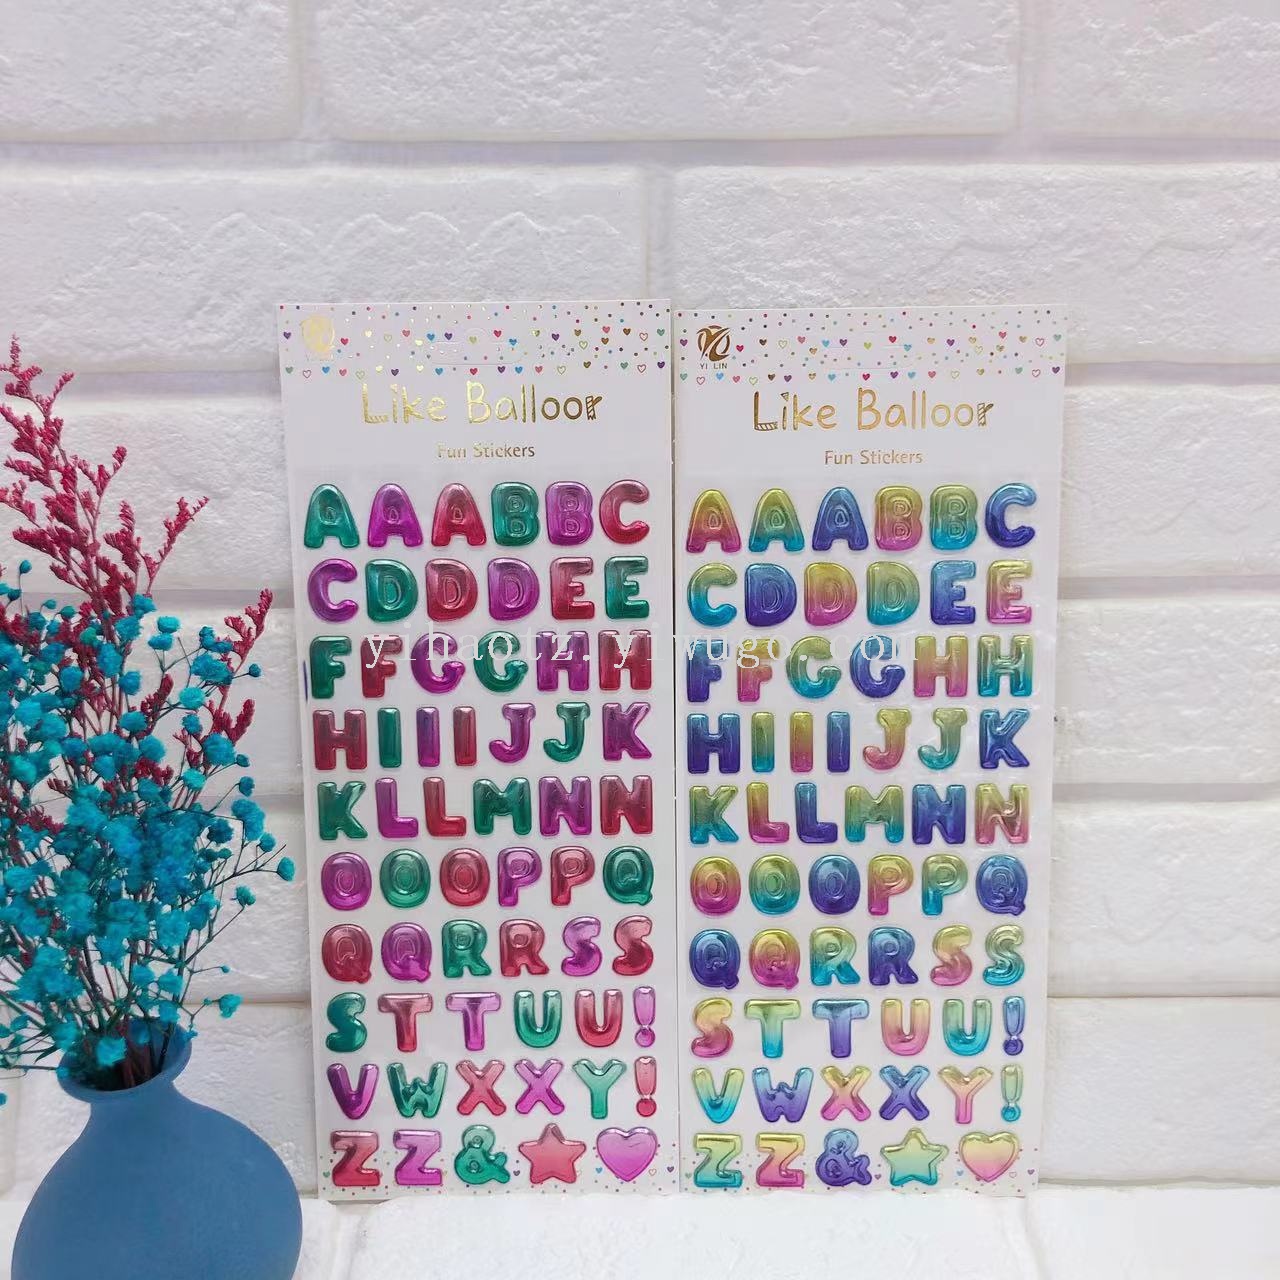 Like Balloor
Fun Stickers
A A A B B C
C D D D E E
F F G G H H
H I I I J J K
K L L M N N
O O O P P Q
Q Q R R S S
S T T U U !
V W X X Y !
Z Z &
YI LIN
Like Balloor
Fun Stickers
A A A B B C
C D D D E E
F F G G H H
H I I I J J K
K L L M N N
O O O P P Q
Q Q R R S S
S T T U U !
V W X X Y !
Z Z &
yihaotz.yiwugo.com